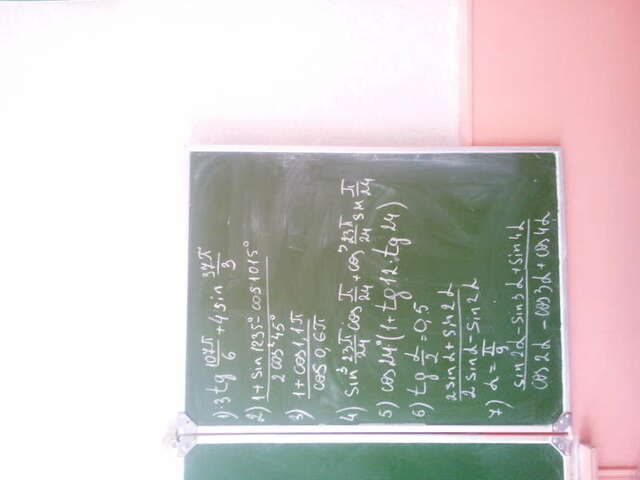 1) 3tg 107π/6 + 4 sin 37π/3
2) (1 + sin 1235° cos 1015°)/(2 cos² 45°)
3) (1 + cos 1,1π)/(cos 0,6π)
4) sin³ 23π/24 cos π/24 + cos³ 23π/24 sin π/24
5) cos 24° (1 + tg 12 · tg 24)
6) tg α/2 = 0,5
(2 sin α + sin 2α)/(2 sin α - sin 2α)
7) α = π/9
(sin 2α - sin 3α + sin 4α)/(cos 2α - cos 3α + cos 4α)